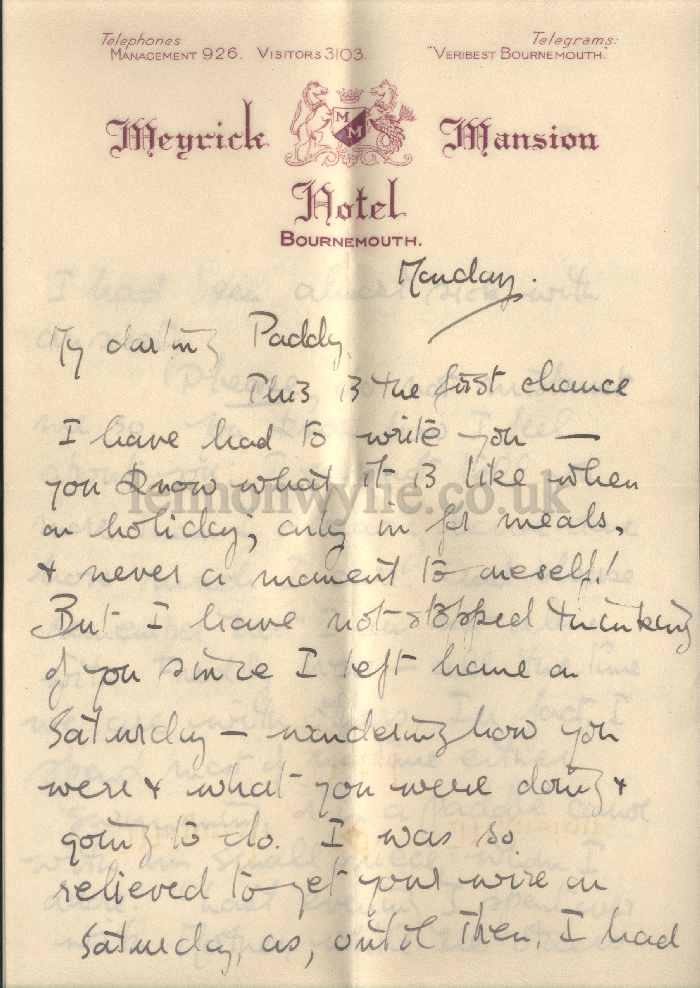 Telephones: Telegrams:
MANAGEMENT 926. VISITORS 3103. "VERIBEST BOURNEMOUTH."
M M
Meyrick Mansion
Hotel
BOURNEMOUTH.
Monday.
My darling Paddy,
This is the first chance
I have had to write you —
you know what it is like when
lennonwylie.co.uk
on holiday; only in for meals,
& never a moment to oneself!
But I have not stopped thinking
of you since I left home on
Saturday — wondering how you
were & what you were doing &
going to do. I was so
relieved to get your wire on
Saturday, as, until then, I had